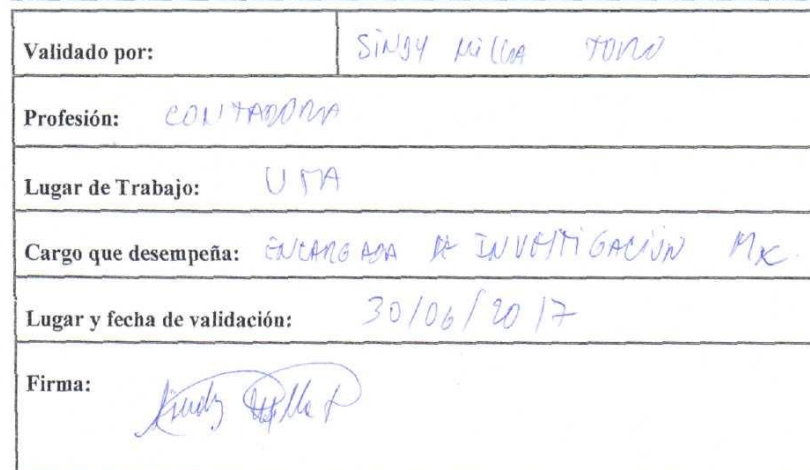 Validado por: SINDY MILLA TORO
Profesión: CONTADORA
Lugar de Trabajo: UTA
Cargo que desempeña: ENCARGADA DE INVESTIGACIÓN
Lugar y fecha de validación: 30/06/2017
Firma: